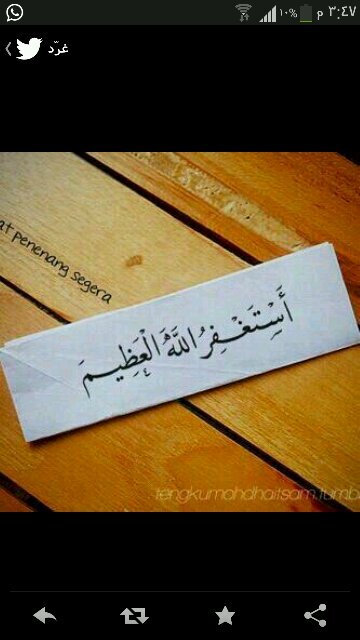 ١٠% م ٣:٤٧
غرّد
at penenang segera
أَسْتَغْفِرُ اللَّهَ الْعَظِيمَ
tengkumahdhaitsam.tumb